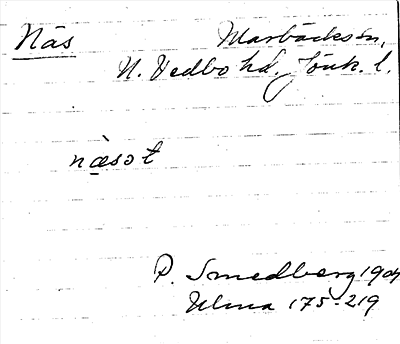 Näs Marbäcks sn,
N. Vedbo hd. Jönk. l.
næsot
P. Smedberg
Ulma 175:219